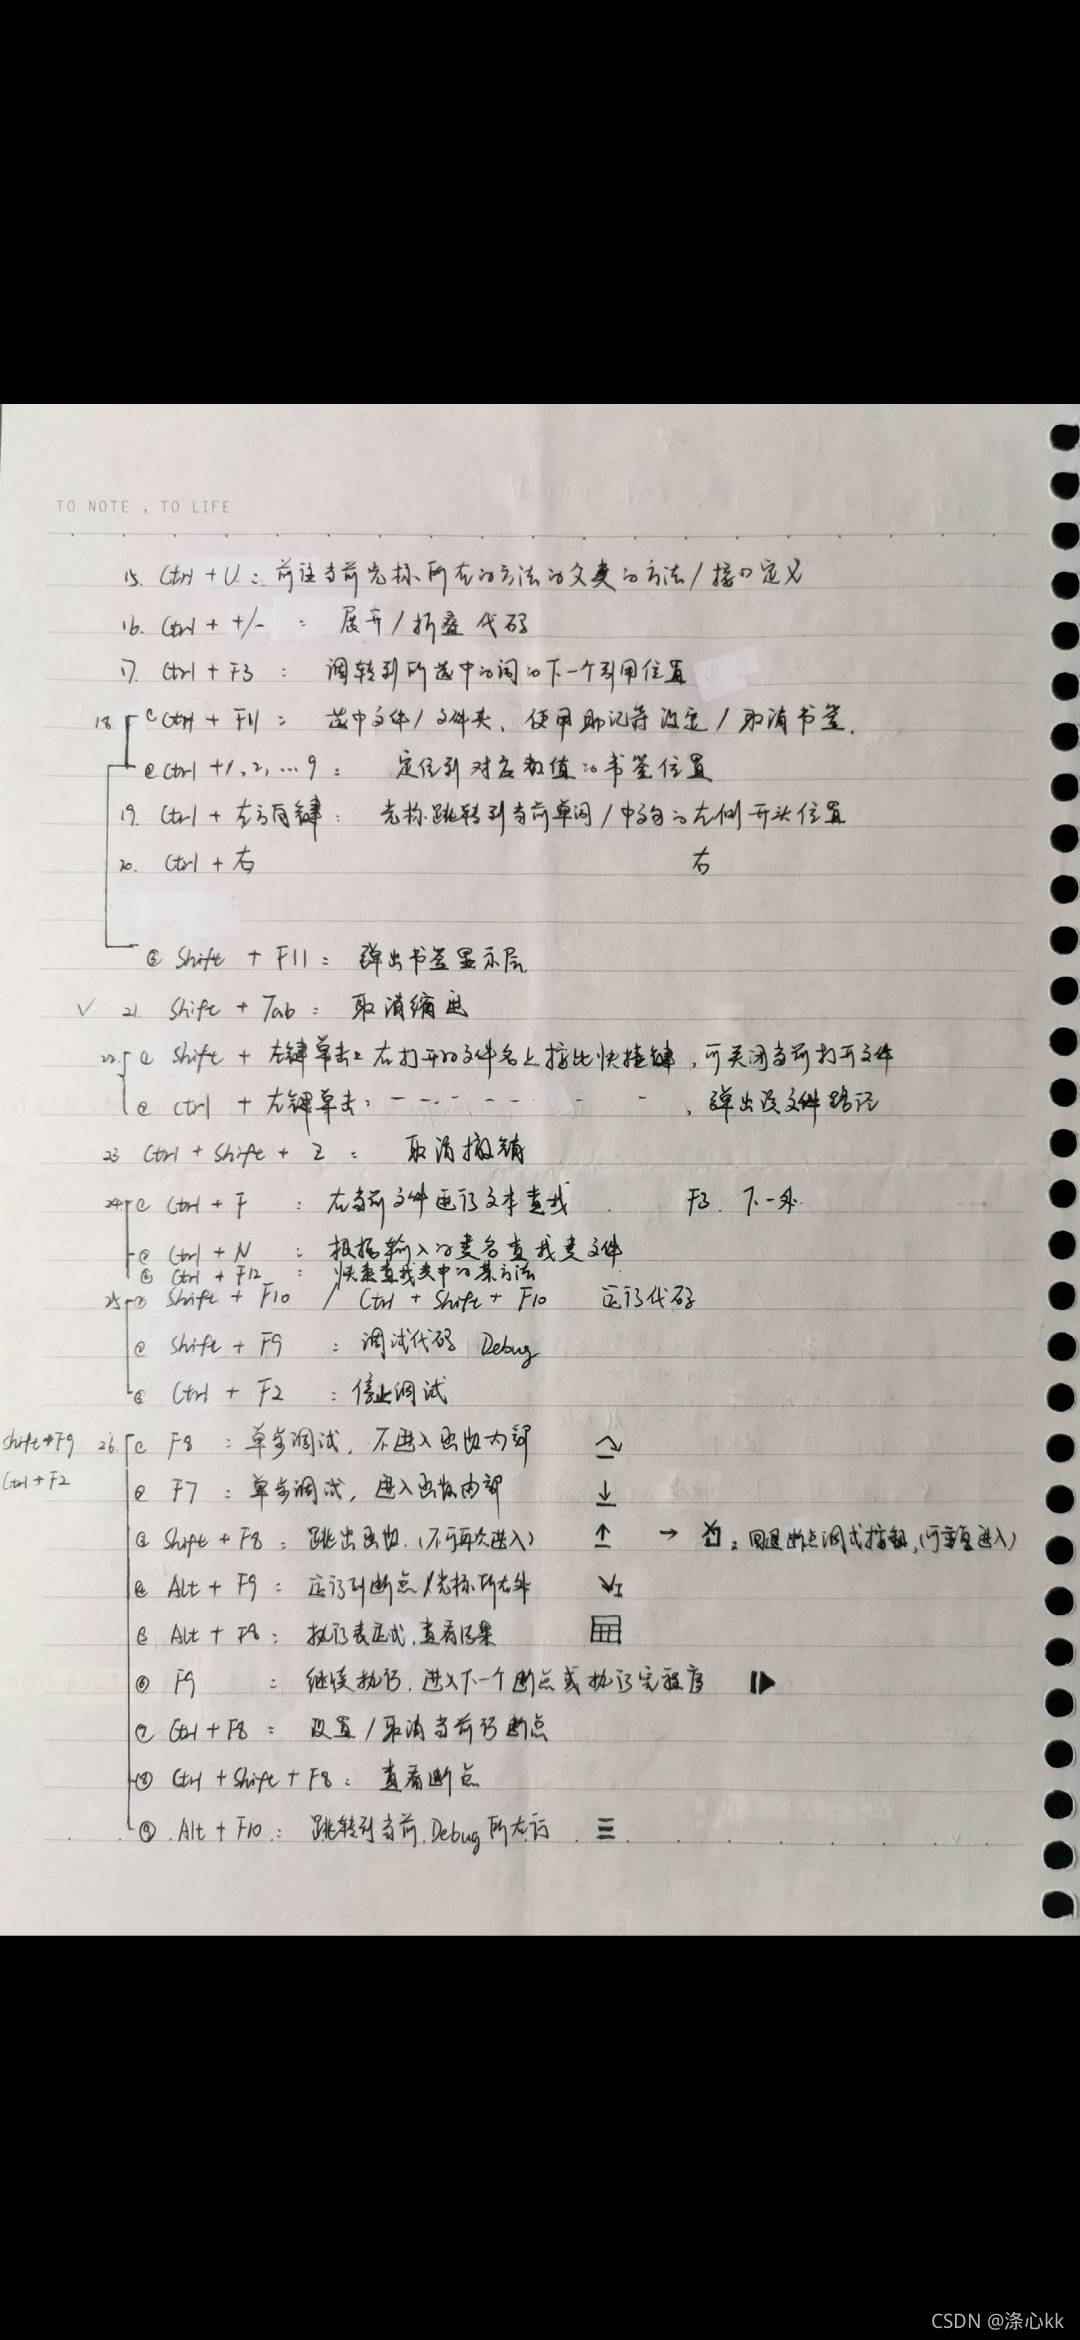 TO NOTE , TO LIFE
15. Ctrl + U : 前往当前光标所在的方法的父类的方法 / 接口定义
16. Ctrl + +/- : 展开 / 折叠代码
17. Ctrl + F3 : 调转到所选中的词的下一个引用位置
18. ① Ctrl + F11 : 选中文件 / 文件夹, 使用助记符设定 / 取消书签.
② Ctrl + 1, 2, ... 9 : 定位到对应数值的书签位置
19. Ctrl + 左方向键 : 光标跳转到当前单词 / 中文句的左侧开头位置
20. Ctrl + 右 右
③ Shift + F11 : 弹出书签显示层
✓ 21. Shift + Tab : 取消缩进
22. ① Shift + 左键单击 : 在打开的文件名上按此快捷键, 可关闭当前打开文件
② ctrl + 左键单击 : - - - - - - - - , 弹出该文件路径
23 Ctrl + Shift + Z : 取消撤销
24. ① Ctrl + F : 在当前文件进行文本查找 F3. 下一处
② Ctrl + N : 根据输入的类名查找类文件
③ Ctrl + F12 : 快速查找类中的某方法
25. ① Shift + F10 / Ctrl + Shift + F10 运行代码
② Shift + F9 : 调试代码 Debug
③ Ctrl + F2 : 停止调试
Shift+F9 26. ① F8 : 单步调试, 不进入函数内部
Ctrl+F2
② F7 : 单步调试, 进入函数内部
③ Shift + F8 : 跳出函数. (不可再次进入) → : 回退断点调式按钮, (可重复进入)
④ Alt + F9 : 运行到断点 / 光标所在处
⑤ Alt + F8 : 执行表达式, 查看结果
⑥ F9 : 继续执行, 进入下一个断点或执行完程序
⑦ Ctrl + F8 : 设置 / 取消当前行断点
⑧ Ctrl + Shift + F8 : 查看断点
⑨ Alt + F10 : 跳转到当前 Debug 所在行
CSDN @涤心kk